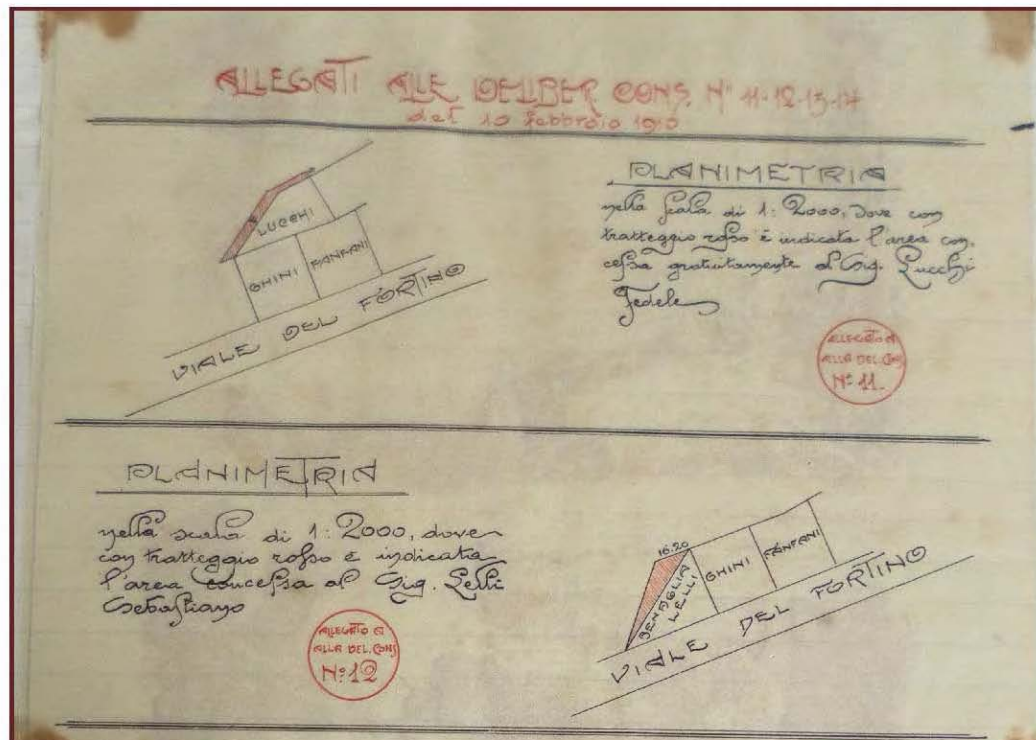 ALLEGATI ALLE DELIBER CONS. Nº 11-12-13-14
del 10 febbraio 1910
LUCCHI
GHINI
FANFANI
VIALE DEL FORTINO
PLANIMETRIA
nella scala di 1:2000, dove con
tratteggio rosso è indicata l'area con-
cessa gratuitamente al Sig. Lucchi
Fedele
ALLEGATO A
ALLA DEL. CONS
Nº 11.
PLANIMETRIA
nella scala di 1:2000, dove
con tratteggio rosso è indicata
l'area concessa al Sig. Lelli
Sebastiano
ALLEGATO A
ALLA DEL. CONS
Nº 12
16.20
LELLI
GHINI
FANFANI
VIALE DEL FORTINO